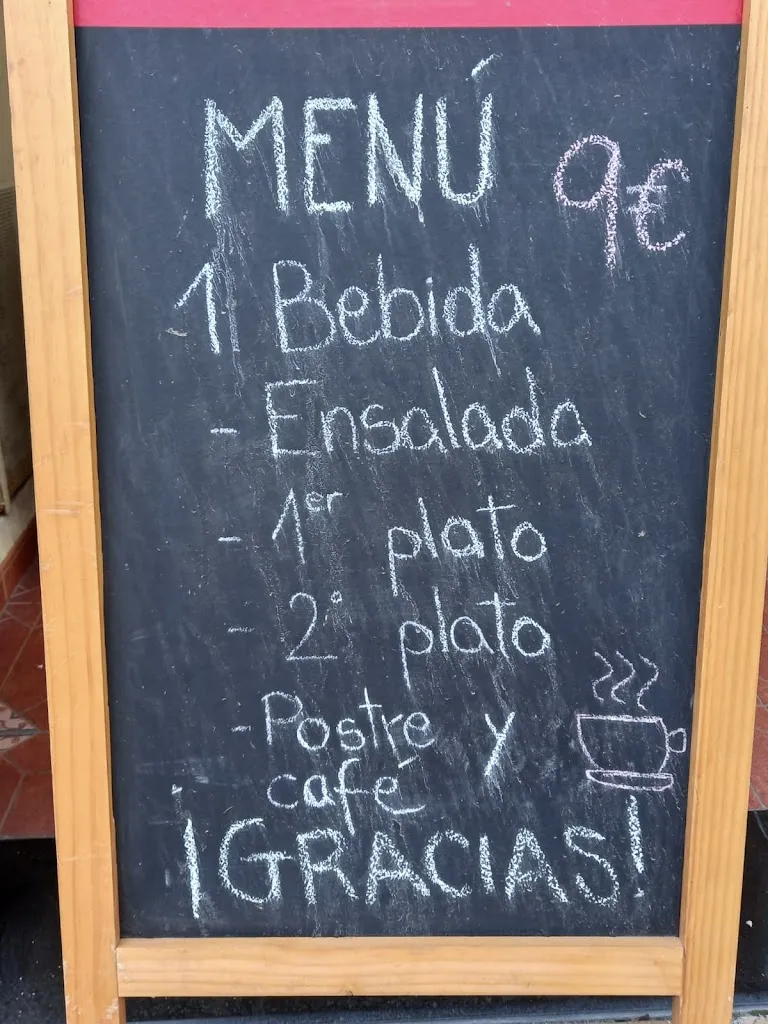 MENÚ 9€
1 Bebida
- Ensalada
- 1er plato
- 2º plato
- Postre y
café
¡GRACIAS!